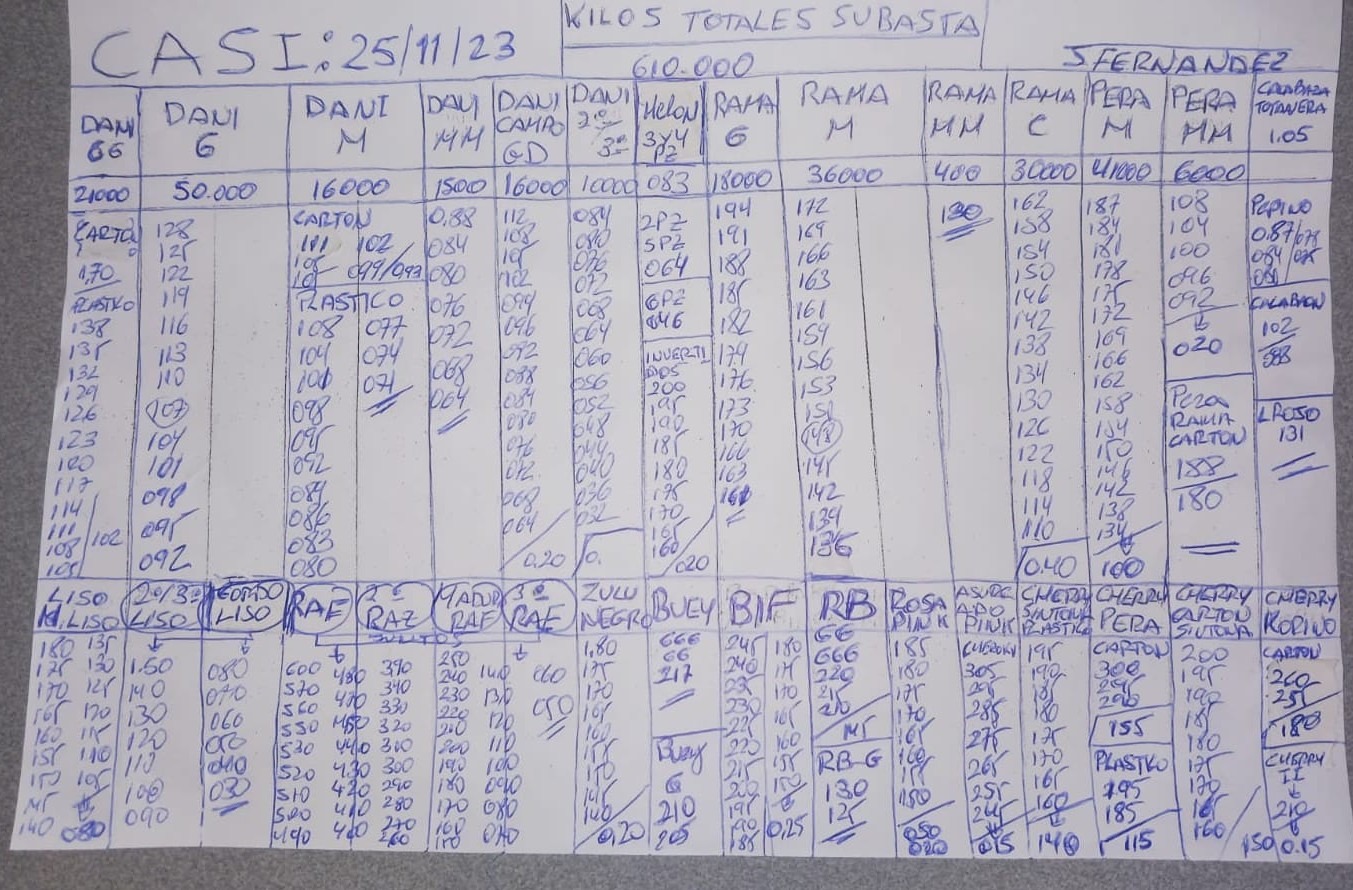 KILOS TOTALES SUBASTA
CASI: 25/11/23
610.000
SFERNANDEZ
DANI GG
DANI G
DANI M
DANI MM
DANI CAMPO GD
DANI 2ª 3ª
Melon 3y4 PZ
RAMA G
RAMA M
RAMA MM
RAMA C
PERA M
PERA MM
CALABAZA TOTANERA 1.05
21000 50.000 16000 1500 16000 10000 083 18000 36000 400 30000 41000 6000
CARTON
170
PLASTICO
138
135
132
129
126
123
120
117
114
111
108 / 102
105
128
125
122
119
116
113
110
107
104
101
098
095
092
CARTON
102
099/093
PLASTICO
108 077
104 074
101 071
098
095
092
089
086
083
080
0.88
084
080
076
072
068
064
112
108
105
102
099
096
092
088
084
080
076
072
068
064
0.20
084
080
076
072
068
064
060
056
052
048
044
040
036
032
0.
2PZ
5PZ
064
6PZ
046
INVERTIDOS
200
195
190
185
180
175
170
165
160 / 020
194
191
188
185
182
179
176
173
170
166
163
161
172
169
166
163
161
159
156
153
151
148
145
142
139
136
130
162
158
154
150
146
142
138
134
130
126
122
118
114
110
0.40
187
184
181
178
175
172
169
166
162
158
154
150
146
142
138
134
100
108
104
100
096
092
020
Pera RAMA CARTON
188
180
Pepino
0.87
CALABACIN
102
LROSO
131
LISO M.LISO
2ª/3ª LISO
GORDO LISO
RAF
2ª RAZ
MADUR RAF
3ª RAF
ZULU NEGRO
BUEY
BIF
RB
ROSA PINK
ASURCADO PINK
CHERRY SINTONA PLASTICO
CHERRY PERA
CHERRY CARTON SINTONA
CHERRY KOPINO
180 135
175 130
170 125
165 120
160 115
155 110
150 105
145
140 080
1.50
140
130
120
110
100
090
080
070
060
050
040
030
600 480 390
570 470 340
560 460 330
550 450 320
530 440 300
520 430 300
510 420 290
500 410 280
490 400 270
260
250
240 140
230 130
220 120
210
200 110
190 100
180 090
170 080
160 070
150
060
050
1,80
175
170
165
160
155
150
145
140
0,20
666
66
217
Buey G
210
205
245 180
240 175
235 170
230
225 165
220 160
215 155
200 150
195
190 0,25
185
66
666
220
215
210
145
RB-G
130
125
185
180
175
170
165
160
155
150
050
020
305
295
285
275
265
255
245
015
195
190
185
180
175
170
165
160
140
CARTON
300
295
290
155
PLASTICO
195
185
115
200
195
190
185
180
175
170
165
160
150
CARTON
260
255
180
CHERRY II
210
0.15